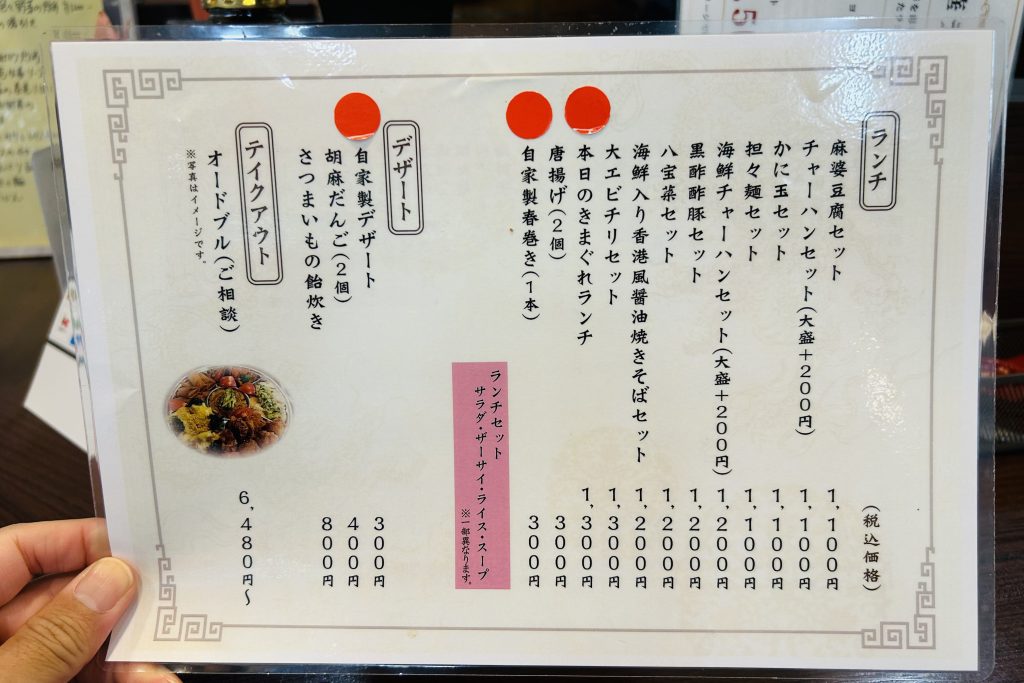 ランチ
(税込価格)
麻婆豆腐セット 1,100円
チャーハンセット(大盛+200円) 1,100円
かに玉セット 1,100円
担々麺セット 1,100円
海鮮チャーハンセット(大盛+200円) 1,200円
黒酢酢豚セット 1,200円
八宝菜セット 1,200円
海鮮入り香港風醤油焼きそばセット 1,200円
大エビチリセット 1,300円
本日のきまぐれランチ 1,300円
唐揚げ(2個) 300円
自家製春巻き(1本) 300円
ランチセット
サラダ・ザーサイ・ライス・スープ
※一部異なります。
デザート
自家製デザート 300円
胡麻だんご(2個) 400円
さつまいもの飴炊き 800円
テイクアウト
オードブル(ご相談) 6,480円〜
※写真はイメージです。